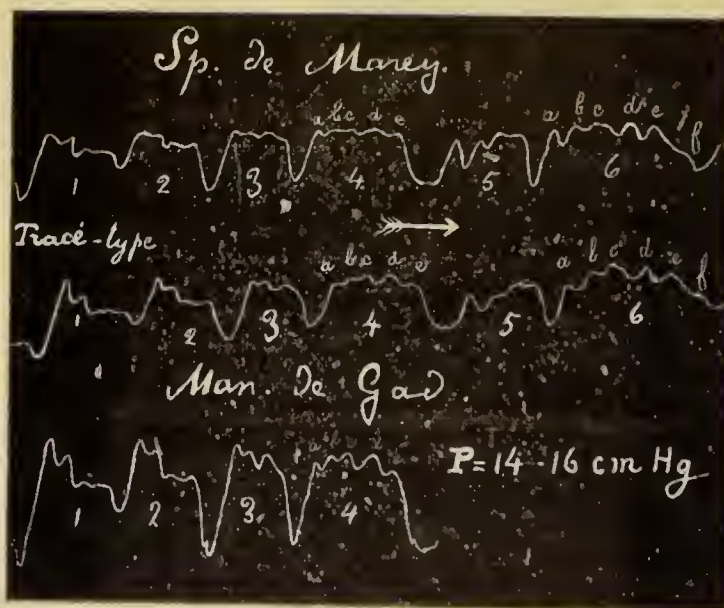 Sp. de Marey.
a b c d e a b c d e f
1 2 3 4 5 6
Tracé-type
a b c d e a b c d e f
1 2 3 4 5 6
Man. de Gad.
a b c d
P=14-16 cm Hg
1 2 3 4